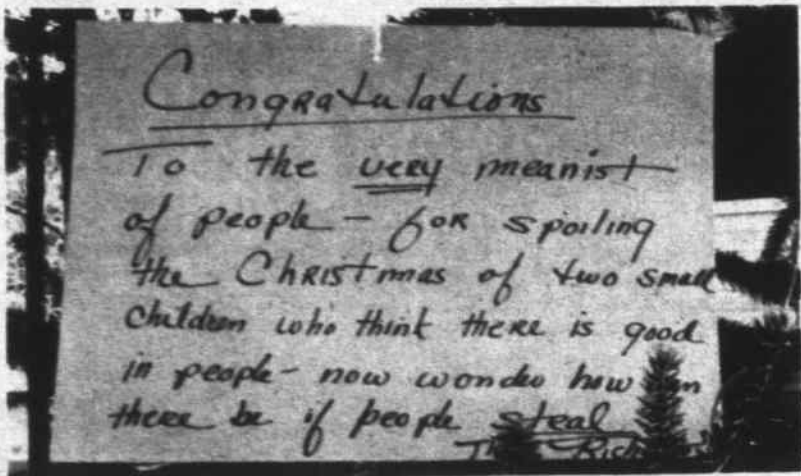 Congratulations
To the very meanist
of people - for spoiling
the Christmas of two small
children who think there is good
in people - now wonder how
there be if people steal